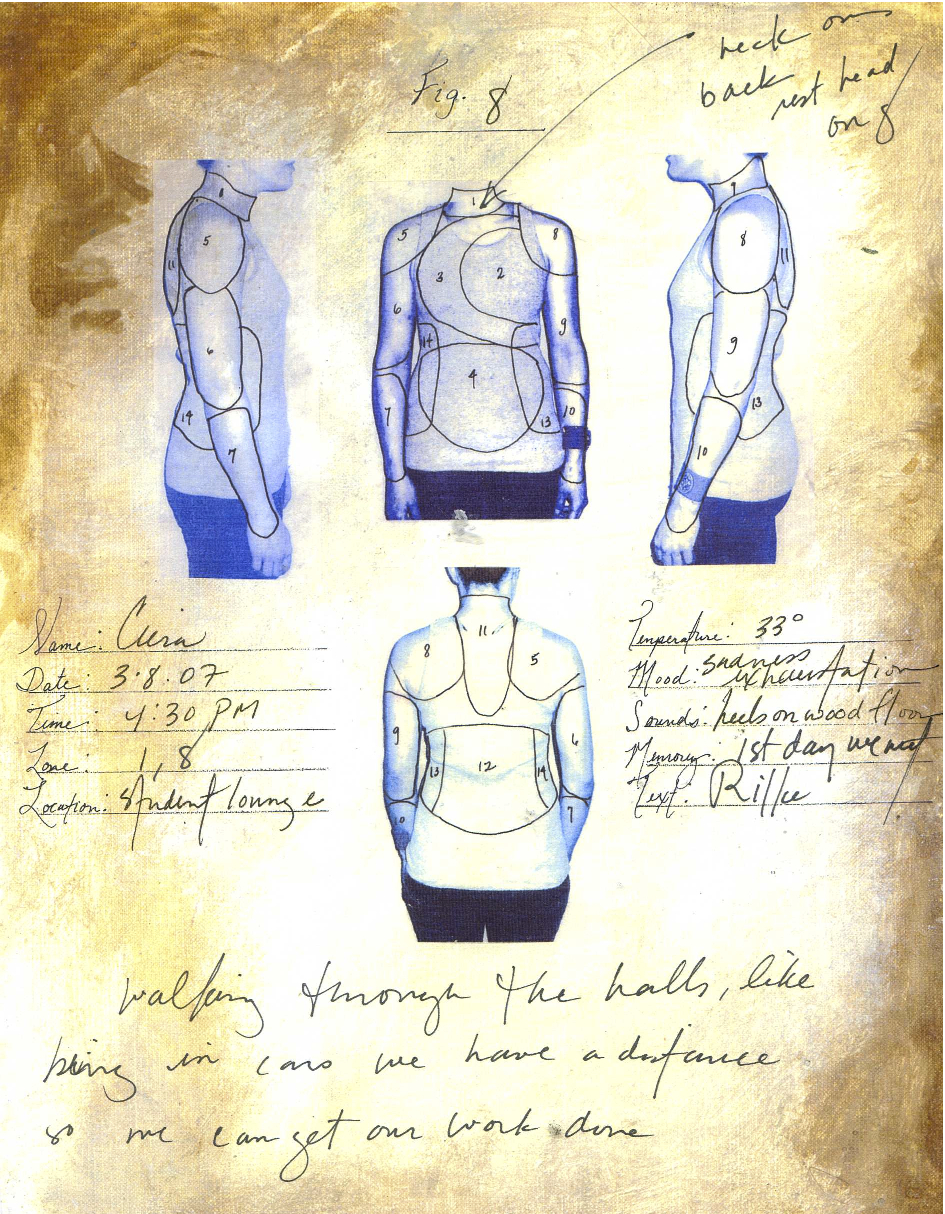 neck on
back
rest head
on 8
Fig. 8
1
5
11
6
14
7
1
5
8
3
2
6
9
14
4
7
13
10
1
8
11
9
13
10
11
8
5
9
6
13
12
14
10
7
Name: Ciera
Date: 3.8.07
Time: 4:30 PM
Zone: 1, 8
Location: Student lounge
Temperature: 33°
Mood: sadness
exhaustation
Sounds: heels on wood floor
Memory: 1st day we met
Text: Rilke
walking through the halls, like
being in cars we have a distance
so we can get our work done